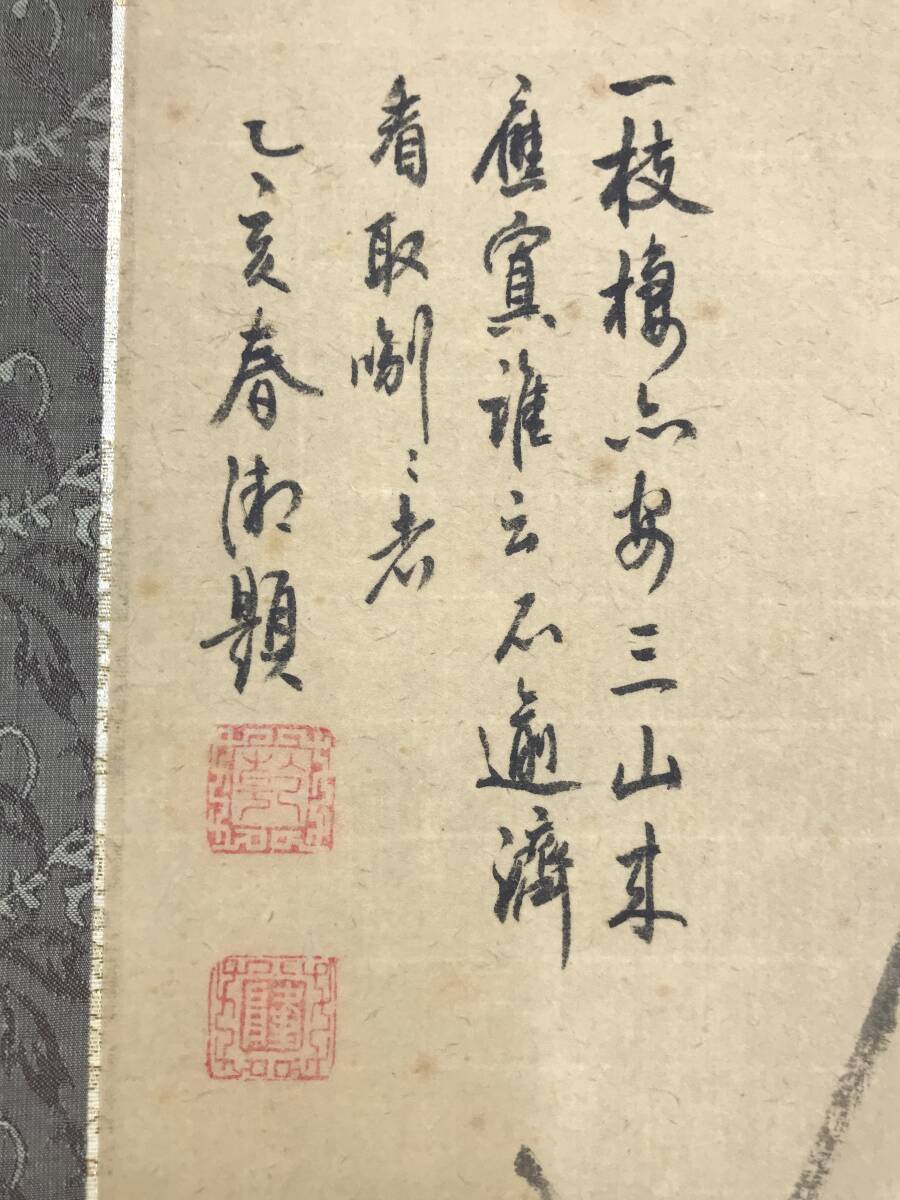 一枝棲亦安三山未
應寘誰云不適濟
看取〻者
乙亥春題